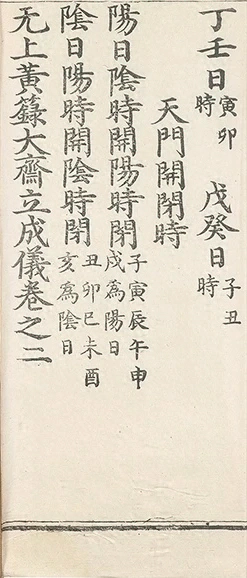 丁壬日寅卯時 戊癸日子丑時
天門開閉時
陽日陰時開陽時閉子寅辰午申戌為陽日
陰日陽時開陰時閉丑卯巳未酉亥為陰日
无上黃籙大齋立成儀卷之二